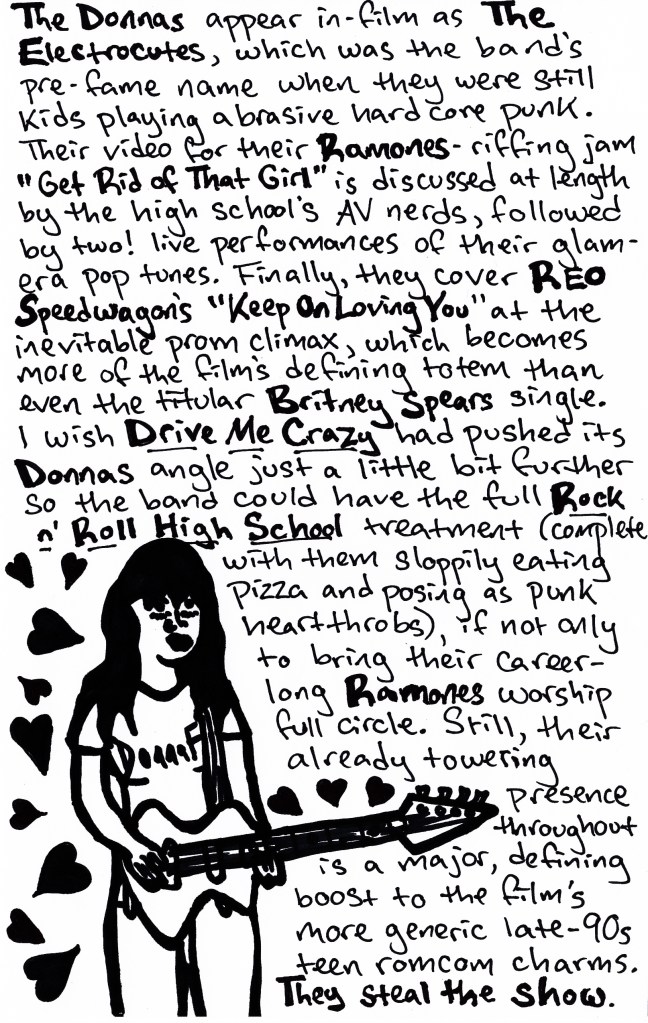 The Donnas appear in-film as The
Electrocutes, which was the band's
pre-fame name when they were still
kids playing abrasive hardcore punk.
Their video for their Ramones-riffing jam
"Get Rid of That Girl" is discussed at length
by the high school's AV nerds, followed
by two! live performances of their glam-
era pop tunes. Finally, they cover REO
Speedwagon's "Keep On Loving You" at the
inevitable prom climax, which becomes
more of the film's defining totem than
even the titular Britney Spears single.
I wish Drive Me Crazy had pushed its
Donnas angle just a little bit further
so the band could have the full Rock
n' Roll High School treatment (complete
with them sloppily eating
pizza and posing as punk
heartthrobs), if not only
to bring their career-
long Ramones worship
full circle. Still, their
already towering
presence
throughout
is a major, defining
boost to the film's
more generic late-90s
teen romcom charms.
They steal the show.
Donnas